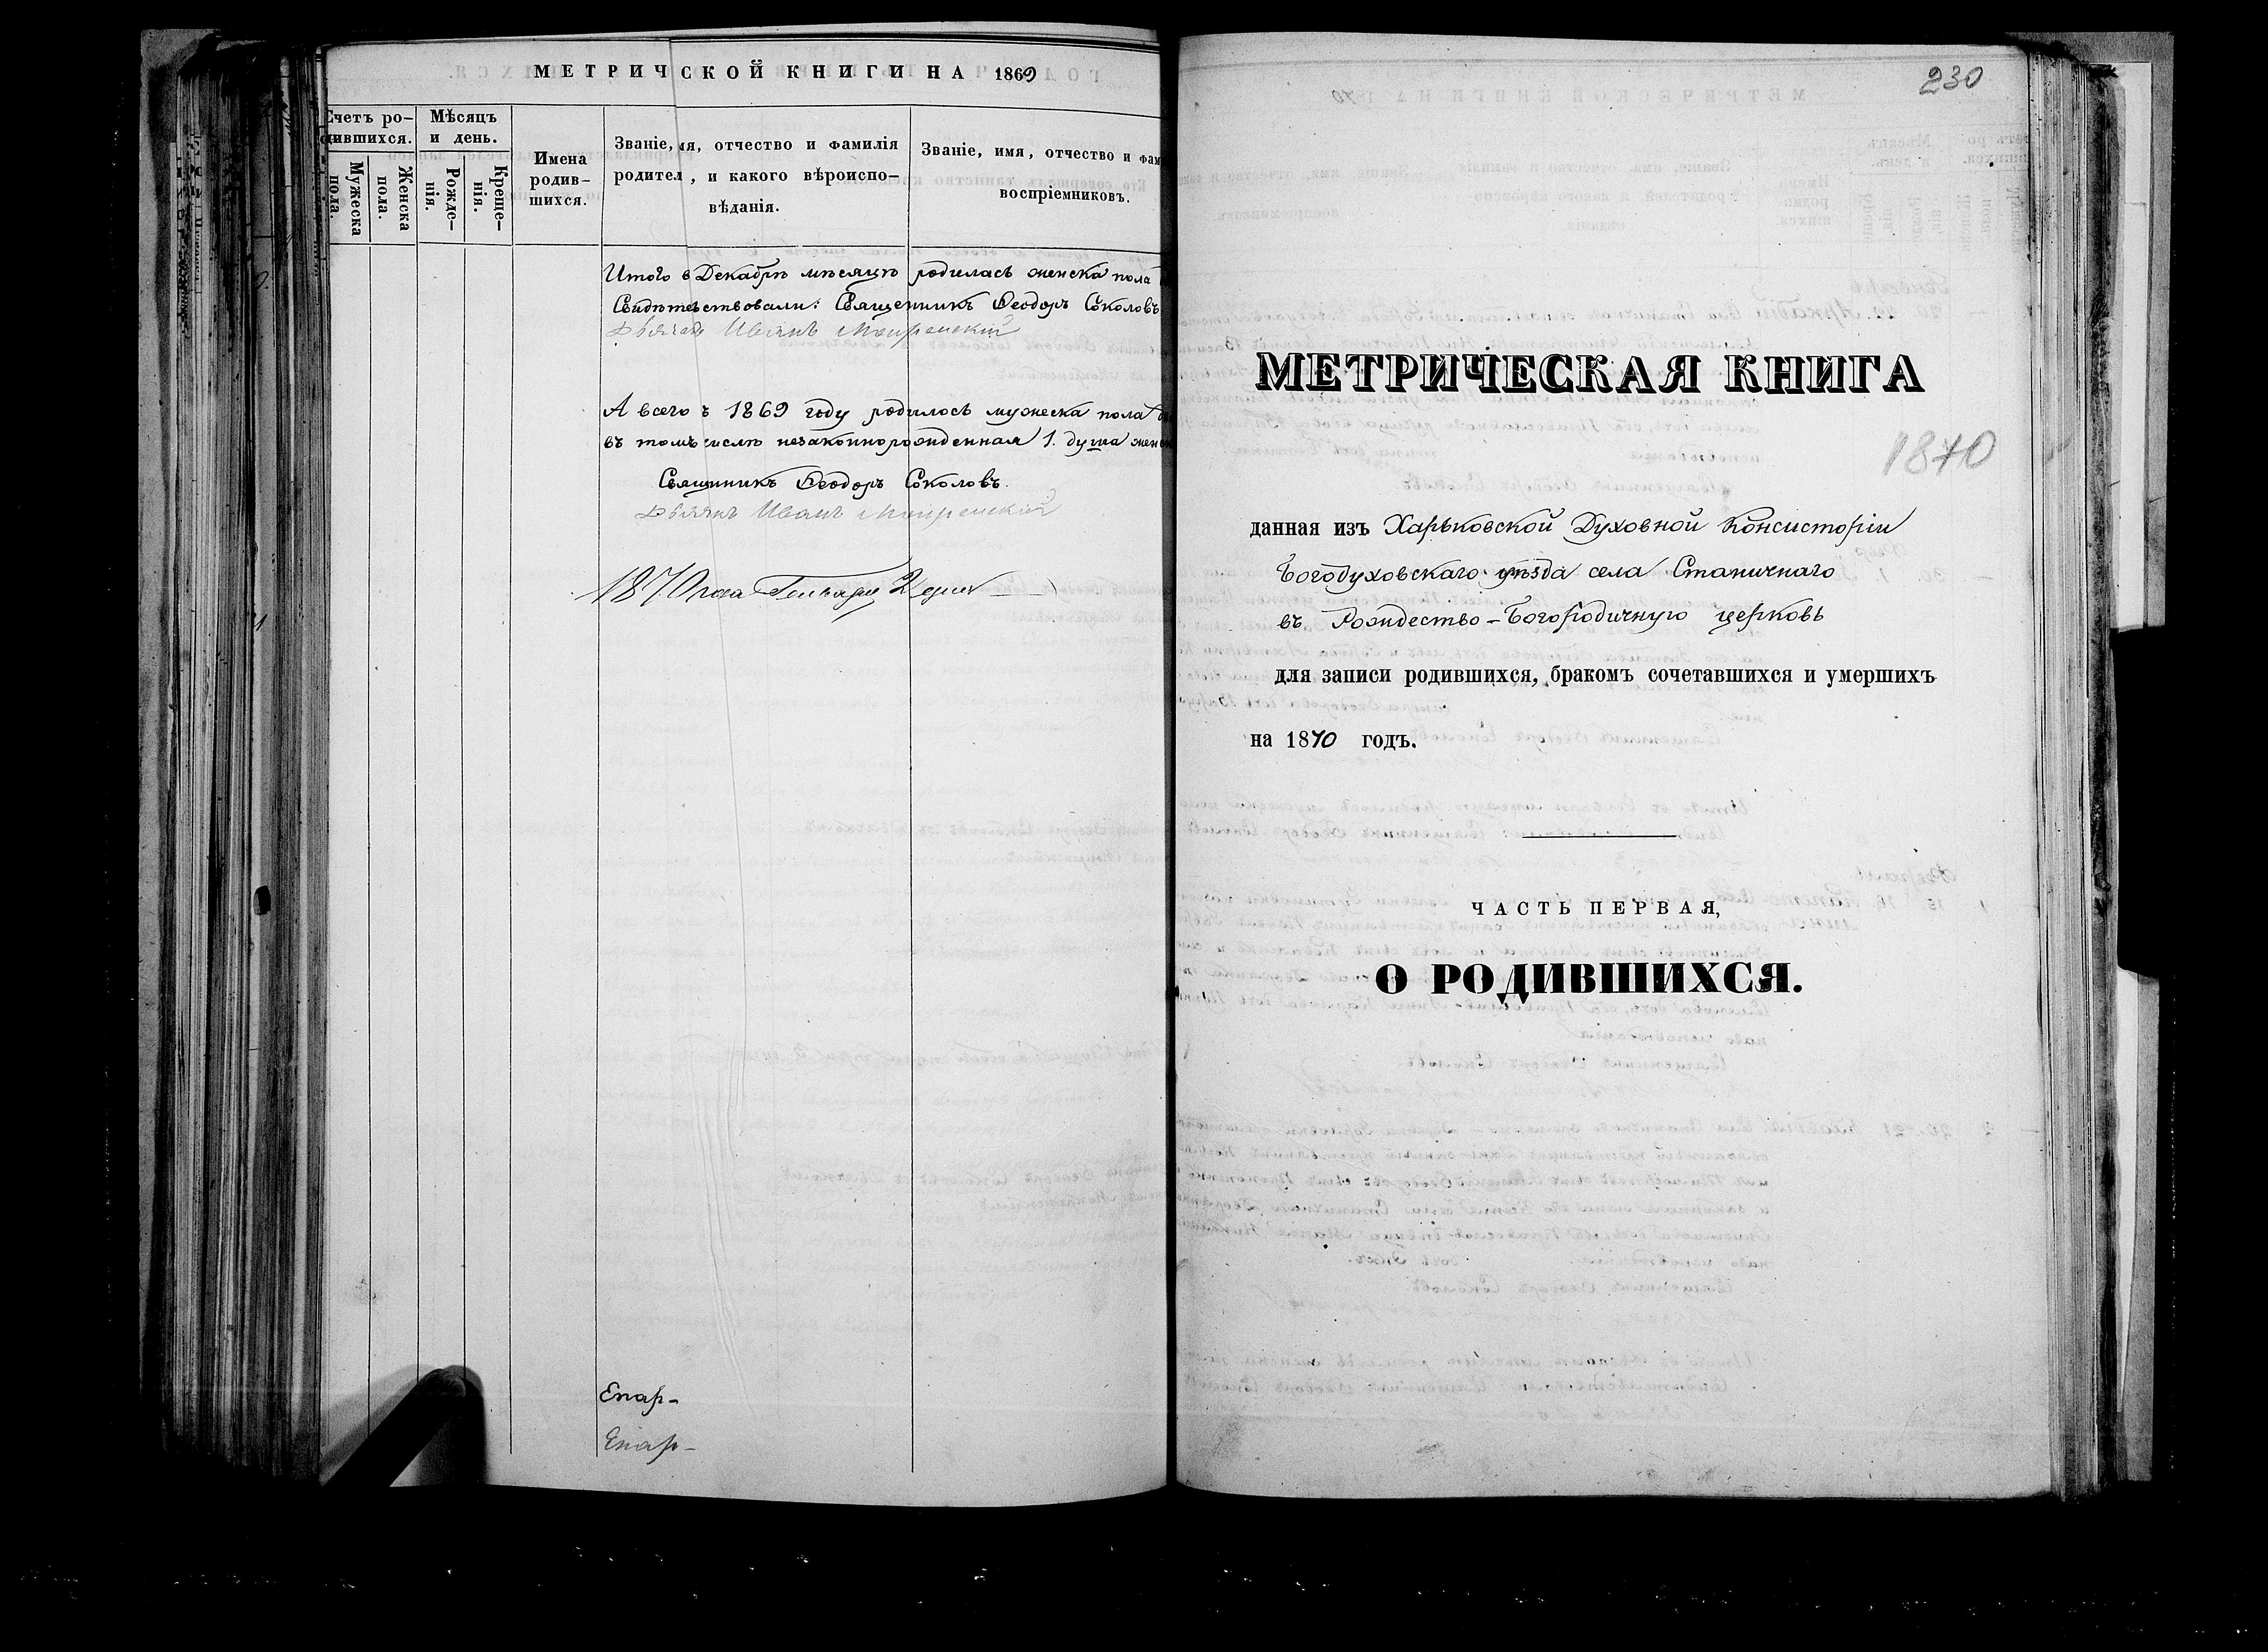 МЕТРИЧСКОЙ КНИГИ НА 1869
Счетъ ро-
дившихся.
Мужеска
пола.
Женска
пола.
Мѣсяцъ
и день.
Рожде-
нія.
Креще-
нія.
Имена
родив-
шихся.
Званіе, ія, отчество и фамилія
родител, и какого вѣроиспо-
вѣданія.
Званіе, имя, отчество и фам
воспріемниковъ.
Итого в Декабрѣ мѣсяцѣ родилась женска пола
Свидѣтельствовали: Священникъ Ѳеодоръ Соколовъ
Дьячекъ Иванъ
А всего в 1869 году родилось мужеска пола
въ томъ числѣ незаконнорожденная 1. душа женск
Священникъ Ѳеодоръ Соколовъ.
Дьячекъ Иванъ
1870 года Генваря 2 дня
Епар-
Епар-
230
МЕТРИЧЕСКАЯ КНИГА
1870
данная изъ Харьковской Духовной Консисторіи
Богодуховскаго уѣзда села Станичнаго
въ Рождество-Богородичную церковь
для записи родившихся, бракомъ сочетавшихся и умершихъ
на 1870 годъ.
ЧАСТЬ ПЕРВАЯ,
О РОДИВШИХСЯ.